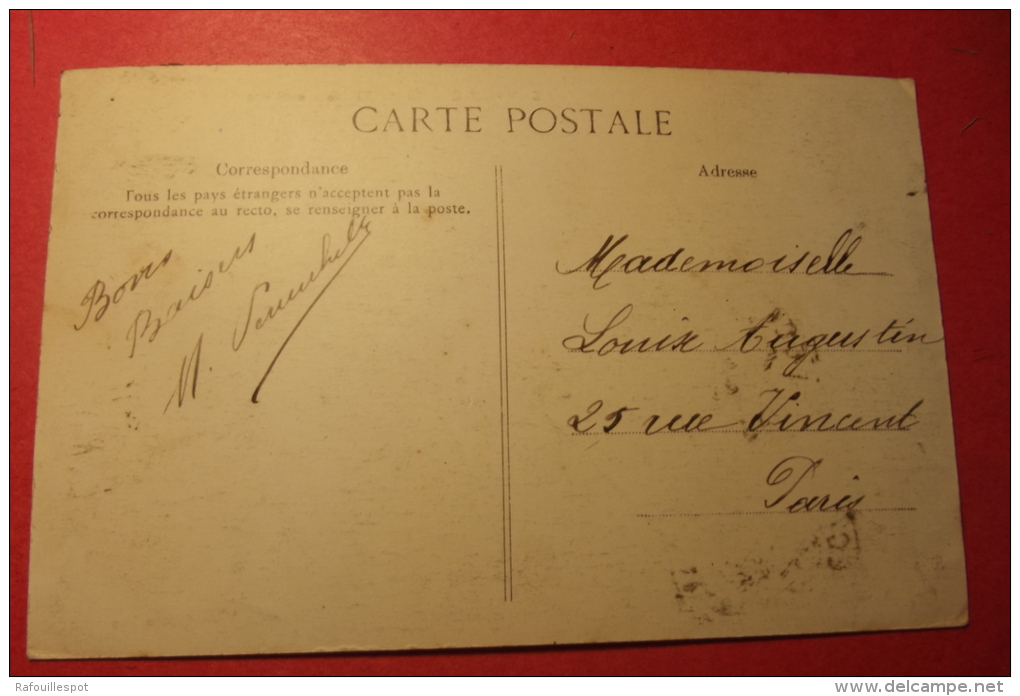 CARTE POSTALE
Correspondance
Tous les pays étrangers n'acceptent pas la
correspondance au recto, se renseigner à la poste.
Bons
Baisers
M.
Adresse
Mademoiselle
Louise Augustin
25 rue Vincent
Paris
Rafouillespot
delcampe.net